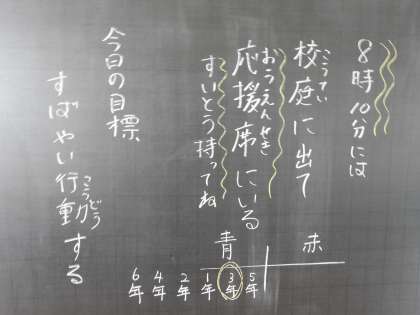 8時10分には
校庭に出て
こうてい
応援席にいる
おうえんせき
すいとう持ってね
今日の目標、
すばやい行動する
こうどう
赤
青
5年
3年
1年
2年
4年
6年